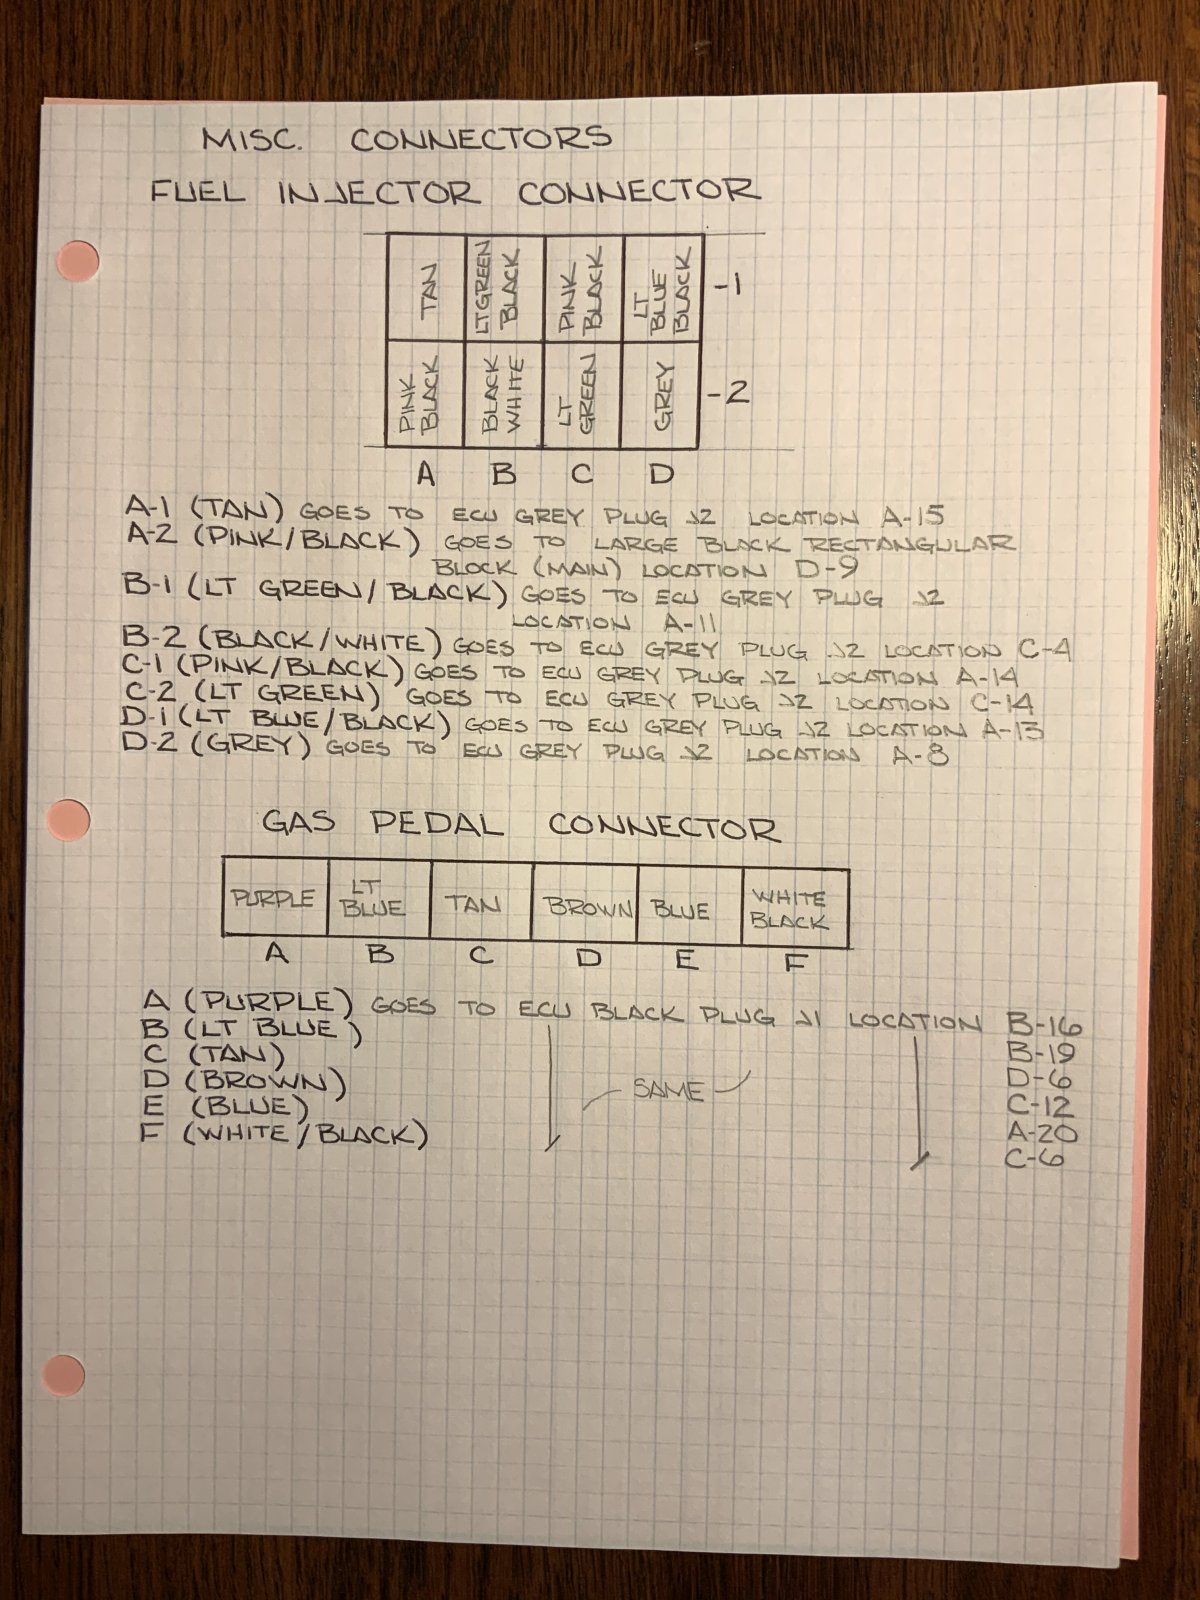 MISC. CONNECTORS
FUEL INJECTOR CONNECTOR
TAN
LT GREEN
BLACK
PINK
BLACK
LT
BLUE
BLACK
-1
PINK
BLACK
BLACK
WHITE
LT
GREEN
GREY
-2
A B C D
A-1 (TAN) GOES TO ECU GREY PLUG J2 LOCATION A-15
A-2 (PINK/BLACK) GOES TO LARGE BLACK RECTANGULAR
BLOCK (MAIN) LOCATION D-9
B-1 (LT GREEN/BLACK) GOES TO ECU GREY PLUG J2
LOCATION A-11
B-2 (BLACK/WHITE) GOES TO ECU GREY PLUG J2 LOCATION C-4
C-1 (PINK/BLACK) GOES TO ECU GREY PLUG J2 LOCATION A-14
C-2 (LT GREEN) GOES TO ECU GREY PLUG J2 LOCATION C-14
D-1 (LT BLUE/BLACK) GOES TO ECU GREY PLUG J2 LOCATION A-13
D-2 (GREY) GOES TO ECU GREY PLUG J2 LOCATION A-8
GAS PEDAL CONNECTOR
PURPLE
LT
BLUE
TAN
BROWN
BLUE
WHITE
BLACK
A B C D E F
A (PURPLE) GOES TO ECU BLACK PLUG J1 LOCATION B-16
B (LT BLUE) B-19
C (TAN) D-6
D (BROWN) SAME C-12
E (BLUE) A-20
F (WHITE/BLACK) C-6